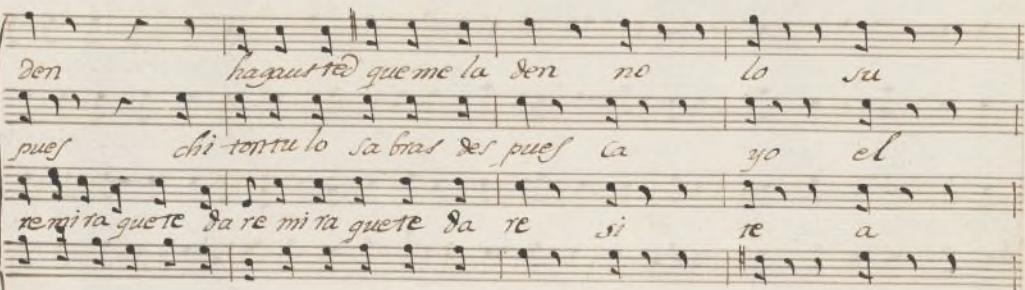 den hagausted que me la den no lo su
pues chi tontu lo sa bras des pues ca yo el
re mi ra que te da re mi ra que te da re si te a